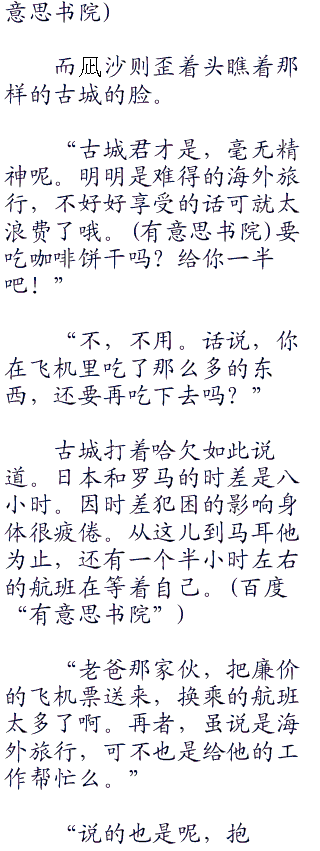 意思书院)
而凪沙则歪着头瞧着那
样的古城的脸。
“古城君才是，毫无精
神呢。明明是难得的海外旅
行，不好好享受的话可就太
浪费了哦。(有意思书院)要
吃咖啡饼干吗？给你一半
吧！”
“不，不用。话说，你
在飞机里吃了那么多的东
西，还要再吃下去吗？”
古城打着哈欠如此说
道。日本和罗马的时差是八
小时。因时差犯困的影响身
体很疲倦。从这儿到马耳他
为止，还有一个半小时左右
的航班在等着自己。(百度
“有意思书院”)
“老爸那家伙，把廉价
的飞机票送来，换乘的航班
太多了啊。再者，虽说是海
外旅行，可不也是给他的工
作帮忙么。”
“说的也是呢，抱